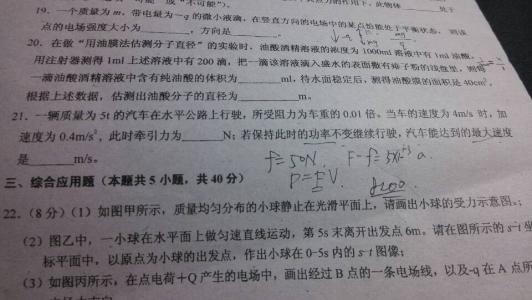 19. 一个质量为m，带电量为-q的微小液滴，在竖直方向的电场中的某点恰能处于平衡状态，则该
点的电场强度大小为______，方向是______.
20. 在做“用油膜法估测分子直径”的实验时，油酸酒精溶液的浓度为1000ml溶液中有1ml油酸，
用注射器测得1ml上述溶液中有200滴，把一滴该溶液滴入盛水的表面撒有痱子粉的浅盘里，则每
一滴油酸酒精溶液中含有纯油酸的体积为______ml，待水面稳定后，测得油酸膜的面积是40cm²，
根据上述数据，估测出油酸分子的直径为______m.
21. 一辆质量为5t的汽车在水平公路上行驶，所受阻力为车重的0.01倍。当车的速度为4m/s时，加
速度为0.4m/s²，此时牵引力为______N；若保持此时的功率不变继续行驶，汽车能达到的最大速度
是______m/s。
f=50N. F-f=5×10⁻³ a.
P=FV.
三、综合应用题（本题共5小题，共40分）
22.（8分）（1）如图甲所示，质量均匀分布的小球静止在光滑平面上，请画出小球的受力示意图；
（2）图乙中，一小球在水平面上做匀速直线运动，第5s末离开出发点6m。请在图所示的s-t坐
标平面中，以原点为小球的出发点，作出小球在0-5s内的s-t图像；
（3）如图丙所示，在点电荷+Q产生的电场中，画出经过B点的一条电场线，以及-q在A点所